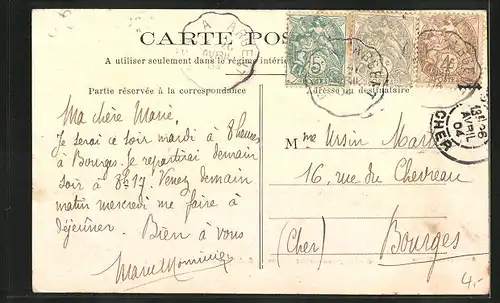 CARTE POS
A utiliser seulement dans le régime intérie
Partie réservée à la correspondance
Adresse du destinataire
Ma chère Marie,
Je serai ce soir mardi à 8 heures
à Bourges. Je repartirai demain
soir à 8h17. Venez demain
matin mercredi me faire à
déjeuner. Bien à vous
Marcel
Mme Ursin
16, rue du Chevreau
(Cher) Bourges
5
4
AVRIL
04
CHER
4.-